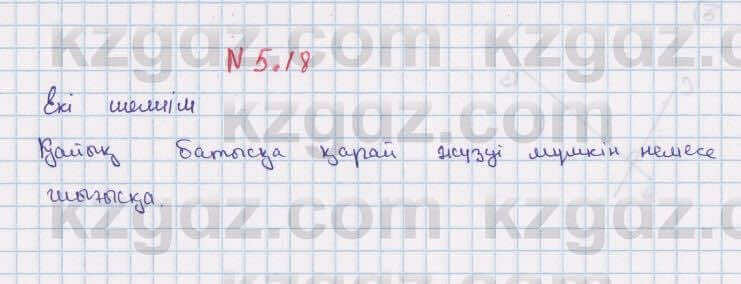 kzgdz.com kzgdz.com
N 5.18
Екі шешім
kzgdz.com
Қайық батысқа қарай жүзуі мүмкін немесе
шығысқа.
kzgdz.com kzgdz.com